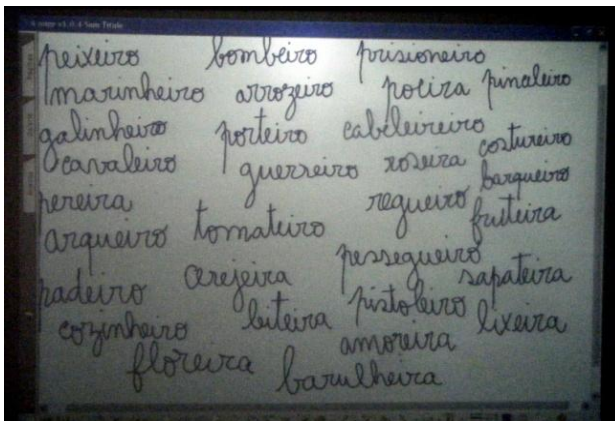 peixeiro bombeiro prisioneiro
marinheiro arrozeiro poeira pinaleiro
galinheiro porteiro cabeleireiro
cavaleiro guerreiro roseira costureiro
pereira regueiro barqueiro
arqueiro tomateiro fruteira
pessegueiro
padeiro cerejeira sapateira
cozinheiro leiteira pistoleiro lixeira
floreira amoreira
barulheira